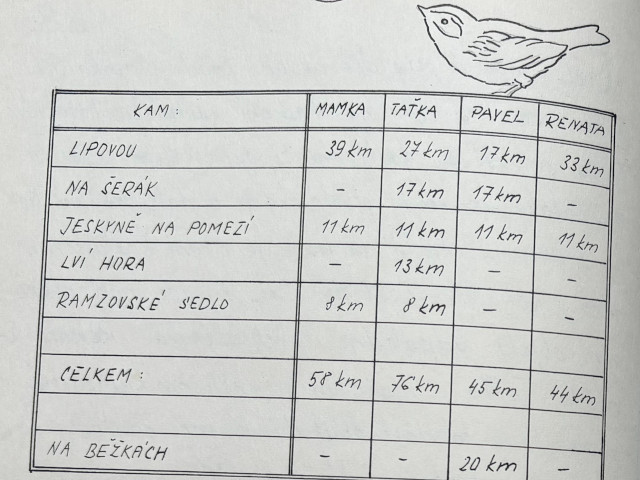 KAM: MAMKA TAŤKA PAVEL RENATA
LIPOVOU 39 km 27 km 17 km 33 km
NA ŠERÁK – 17 km 17 km –
JESKYNĚ NA POMEZÍ 11 km 11 km 11 km 11 km
LVÍ HORA – 13 km – –
RAMZOVSKÉ SEDLO 8 km 8 km – –
CELKEM: 58 km 76 km 45 km 44 km
NA BĚŽKÁCH – – 20 km –